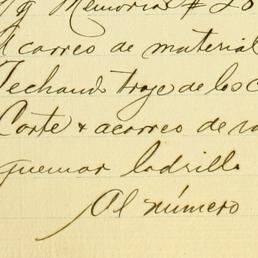 Memoria # 20
Acarreo de material
Techando troje de los
Corte & acarreo de
quemar ladrillo
Al número